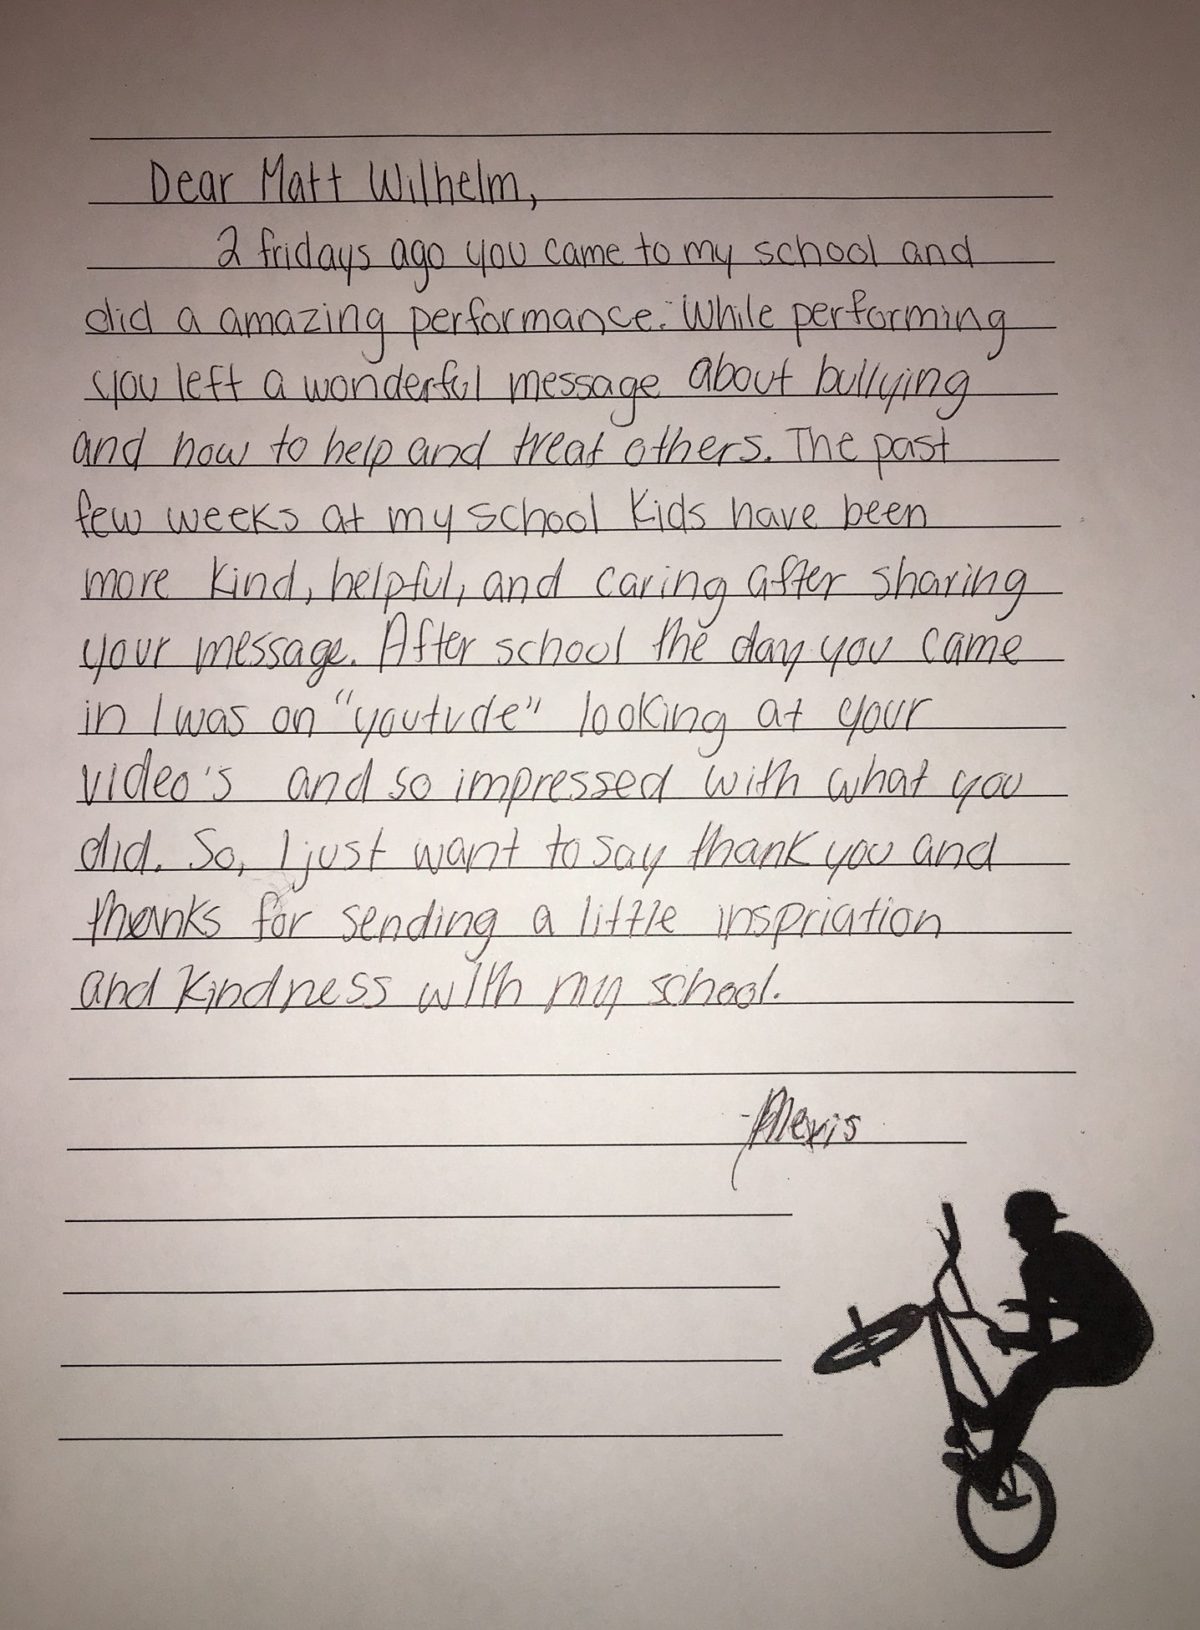 Dear Matt Wilhelm,
2 fridays ago you came to my school and
did a amazing performance. While performing
you left a wonderful message about bullying
and how to help and treat others. The past
few weeks at my school kids have been
more kind, helpful, and caring after sharing
your message. After school the day you came
in I was on "youtude" looking at your
video's and so impressed with what you
did. So, I just want to say thank you and
thanks for sending a little inspriation
and kindness with my school.
-Alexis